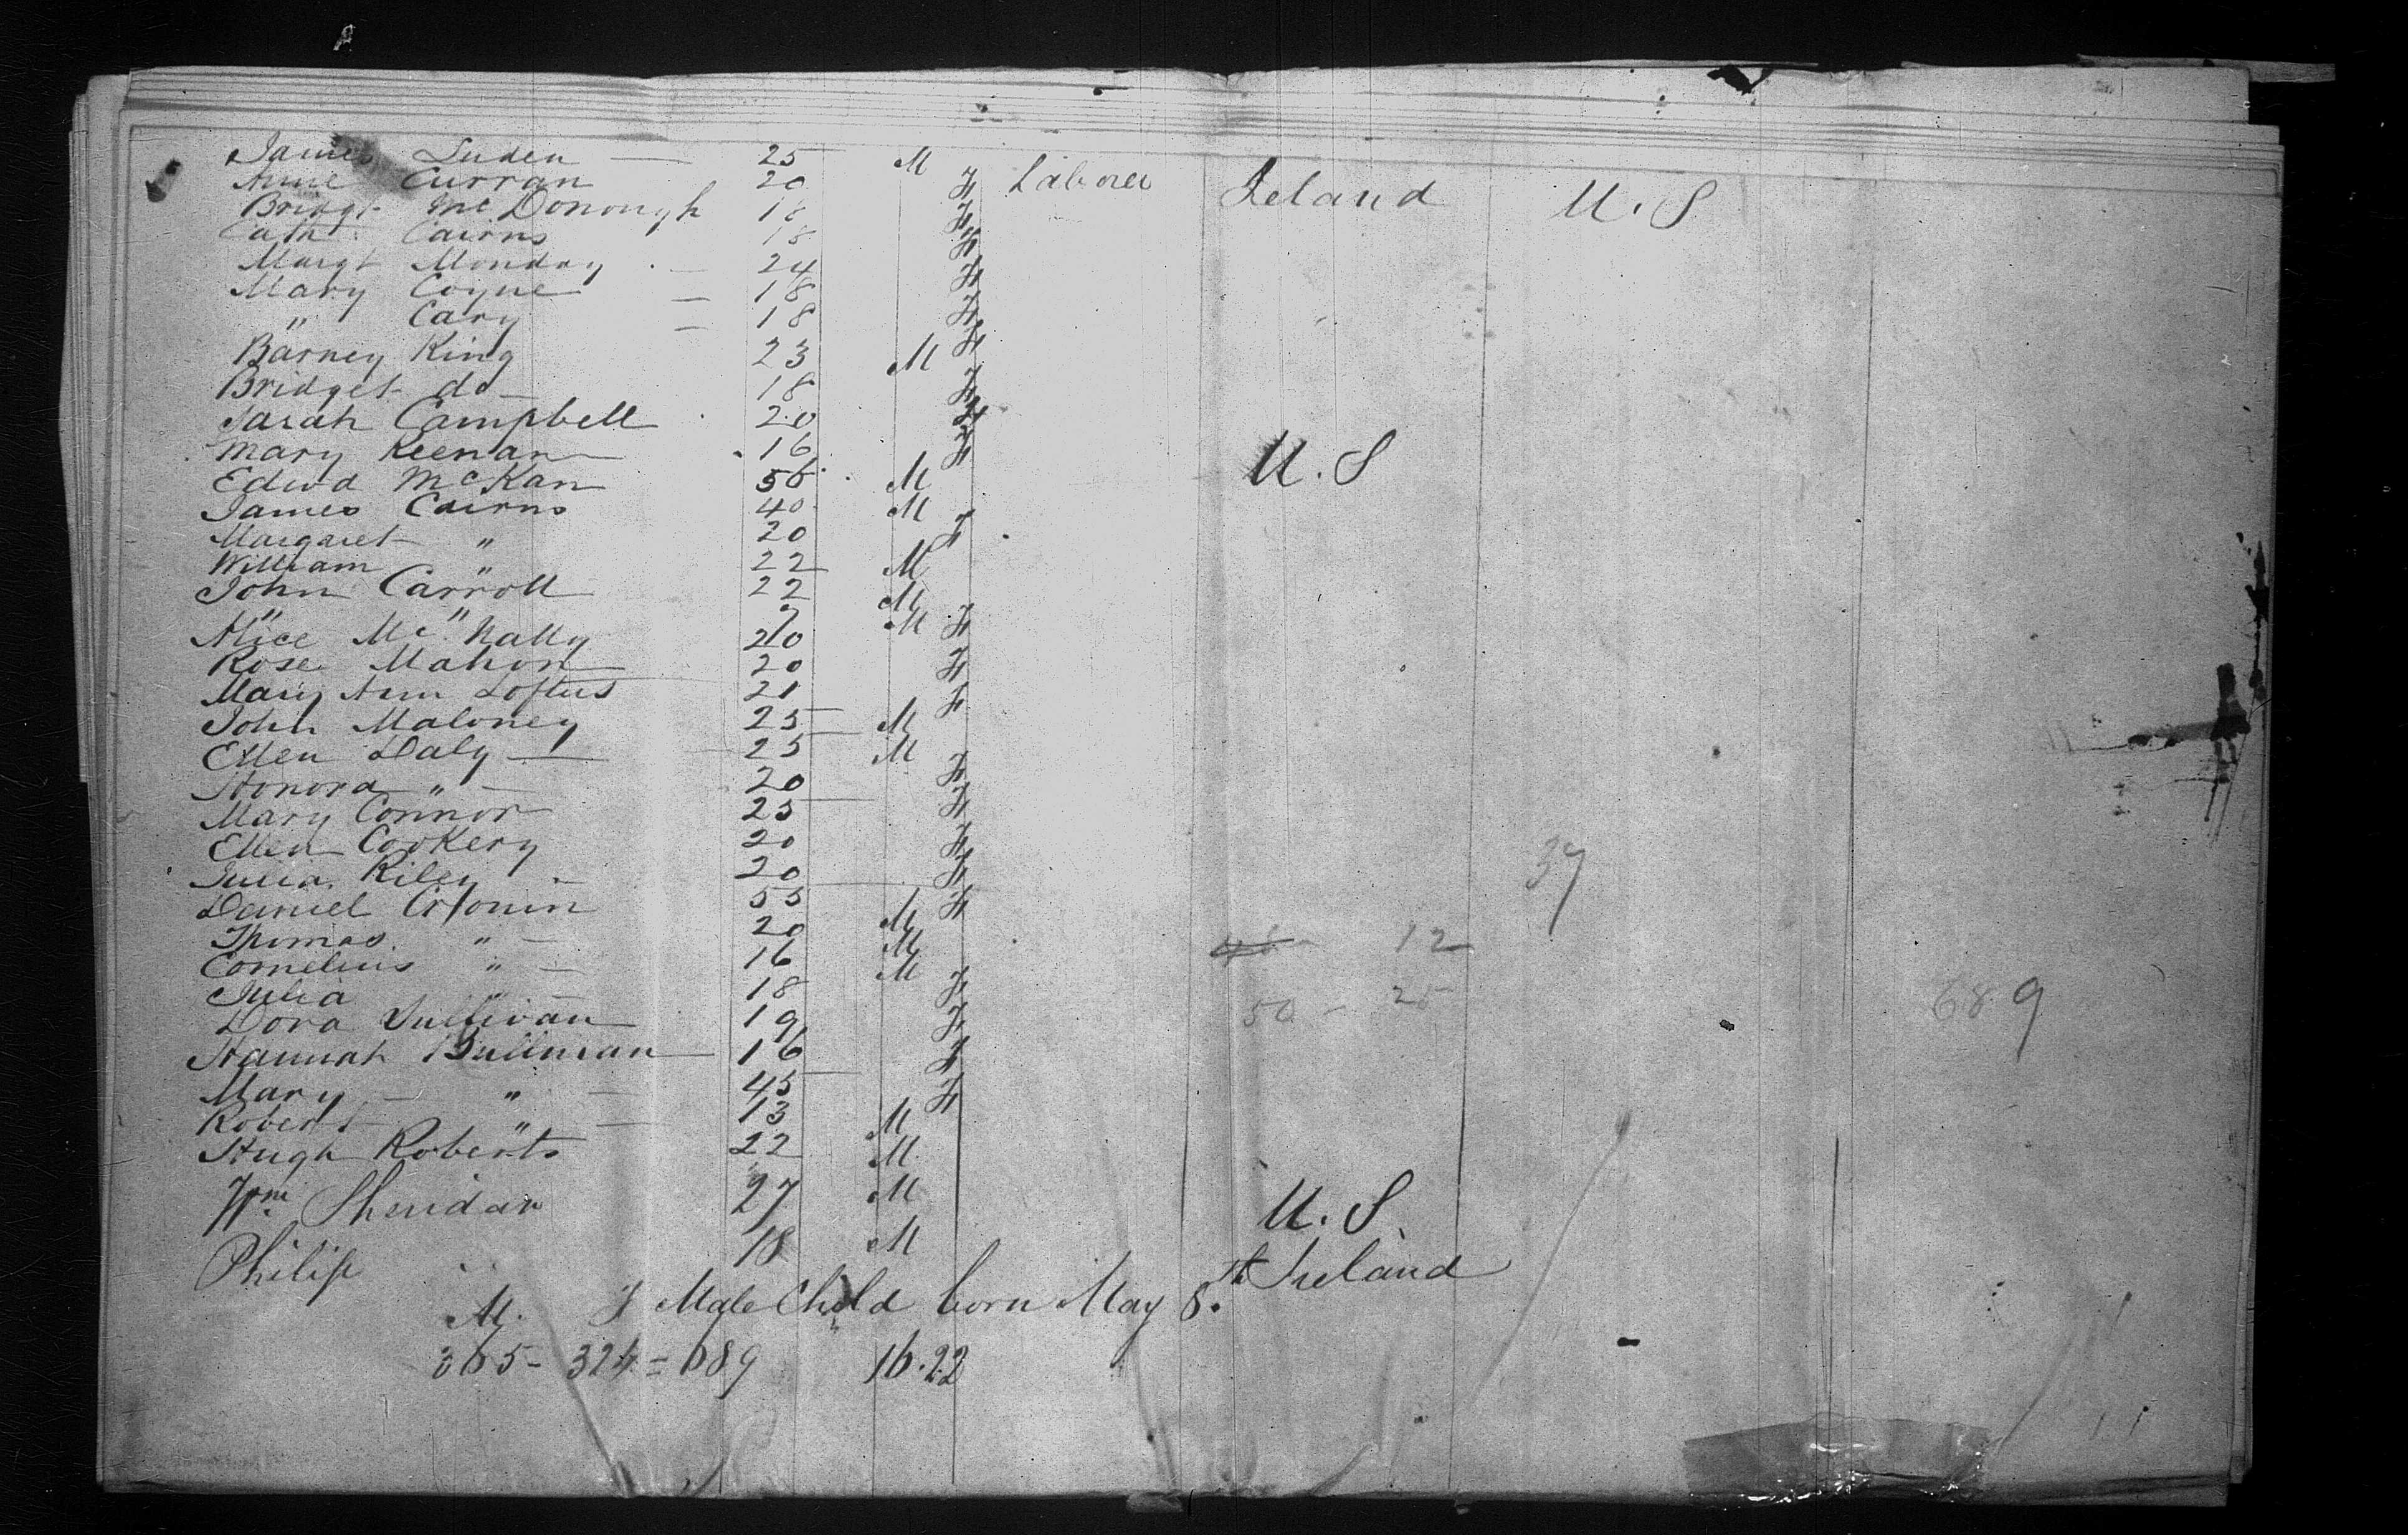 James Luden — 25 M Laborer Ireland U.S
Anne Curran 20 F
Bridgt McDonough 18 F
Cath. Cairns 18 F
Margt Monday — 24 F
Mary Coyne — 18 F
" Cary — 18 F
Barney King 23 M
Bridget do — 18 F
Sarah Campbell 20 F
Mary Keenan 16 F U.S
Edwd McKan 56 M
James Cairns 40 M
Margaret " 20 F
William " 22 M
John Carroll 22 M
" " 9 M
Alice McNally 20 F
Rose Mahon 20 F
Mary Ann Loftus 21 F
John Maloney 25 M
Ellen Daly — 25 M
Honora " — 20 F
Mary Connor 25 F
Ellen Cookery 20 F
Julia Riley — 20 F 37
Daniel Cronin 55 M F
Thomas " — 20 M 12
Cornelius " — 16 M
Julia " — 18 F 50 - 25 689
Dora Sullivan 19 F
Hannah Bullman 16 F
Mary — " — 45 F
Robert " — 13 M
Hugh Roberts 22 M
Wm Sheridan 27 M U.S.
Philip 18 M Ireland
M. F Male Child born May 8th
365 - 324 = 689 16.22